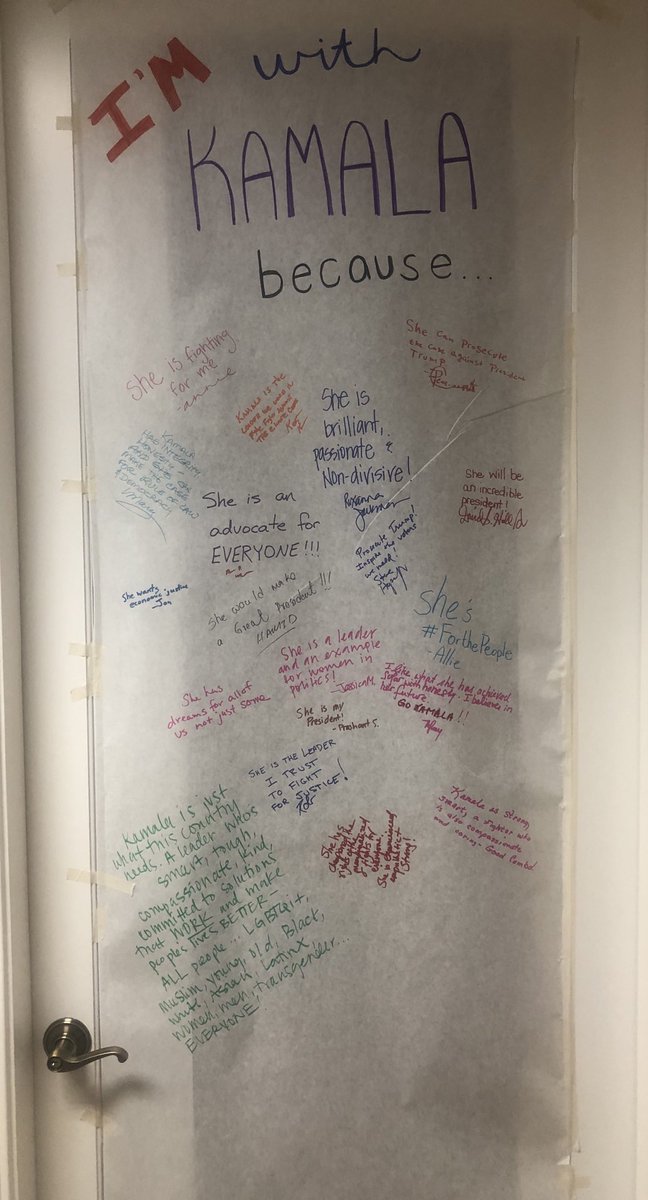 I'M with
KAMALA
because...
She is fighting
for me
-annie
She can prosecute
the case against President
Trump
KAMALA IS THE
She is
brilliant,
passionate &
Non-divisive!
Roxanna
KAMALA
HAS INTEGRITY
HONESTY
AND GUTS
MAKE THE CASE
FOR RULE OF LAW
& DEMOCRACY
She will be
an incredible
president!
She is an
advocate for
EVERYONE!!!
Prosecute Trump!
Inspire the voters
we need!
Steve
She wants
economic justice
-Jon
She would make
a Great President!!!
HAMID
she's
#ForthePeople
-Allie
She is a leader
and an example
for women in
politics!
-Jessica M.
She has
dreams for all of
us not just some
I like what she has achieved
so far with honesty. I believe in
her future
GO KAMALA!!
She is my
President!
-Prashant S.
SHE IS THE LEADER
I TRUST
TO FIGHT
FOR JUSTICE!
Kamala is strong,
smart, a fighter who
is also compassionate
and caring.
Kamala is just
what this country
needs. A leader who's
smart, tough,
compassionate, kind,
committed to solutions
that WORK and make
peoples lives BETTER.
ALL people... LGBTQIT,
Muslim, young, old, Black,
white, Asian, Latinx
women, men, transgender...
EVERYONE!
She has
rights of
everyone,
She is experienced
empathetic +
Strong!